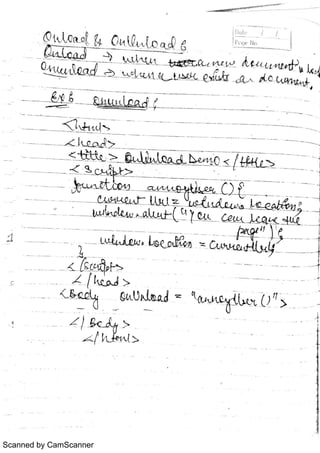 Date / /
Page No.
Onload & OnUnload &
Onload → when a new document is
Onunload → when a user exists a document.
Ex & Onunload :
<html>
<head>
<title> OnUnload Demo </title>
<script>
function annoyUser () {
current Url = window.location;
window.alert("You can leave the
page");
window.location = currentUrl;
}
</script>
</head>
<body onUnload = "annoyUser ()">
</ Body>
</html>
Scanned by CamScanner